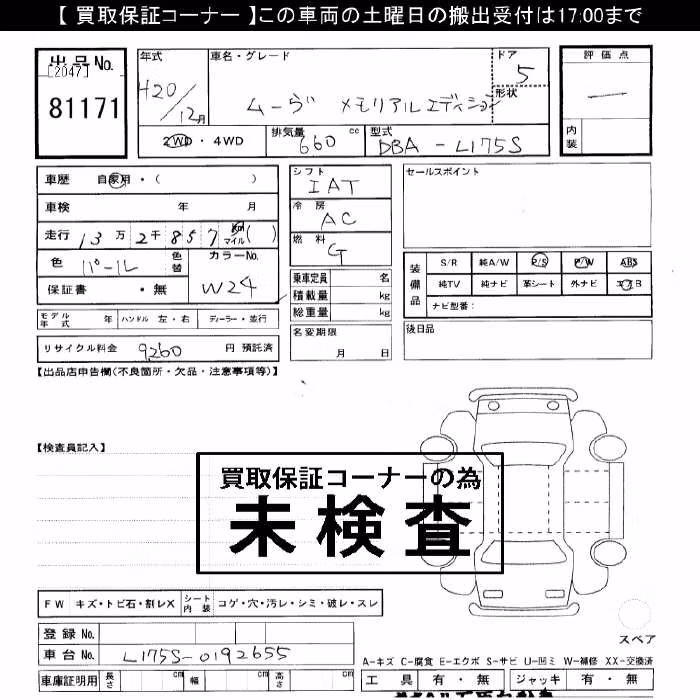 【 買取保証コーナー 】この車両の土曜日の搬出受付は17:00まで
出品No.
[2047]
81171
年式
H20/12月
車名・グレード
ムーヴ メモリアルエディション
ドア
5
形状
2WD・4WD
排気量
660 cc
型式
DBA-L175S
評価点
―
内装
車歴 自家用・( )
車検 年 月
走行 13万2千857 km マイル( )
色 パール 色替
カラーNo.
W24
保証書 ・無
シフト
IAT
冷房
AC
燃料
G
乗車定員 名
積載量 kg
総重量 kg
セールスポイント
装備品
S/R 純A/W P/S P/W ABS
純TV 純ナビ 革シート 外ナビ エアB
ナビ型番：
モデル年式 年 ハンドル 左・右 ディーラー・並行
名変期限
月 日
後日品
リサイクル料金 9260 円 預託済
【出品店申告欄(不良箇所・欠品・注意事項等)】
【検査員記入】
買取保証コーナーの為
未検査
FW キズ・トビ石・割レX
シート内装 コゲ・穴・汚レ・シミ・破レ・スレ
登録No.
車台No. L175S-0192655
車庫証明用 長さ cm 幅 cm 高さ cm
スペア
A-キズ C-腐食 E-エクボ S-サビ U-凹ミ W-補修 XX-交換済
工具 有・無 ジャッキ 有・無